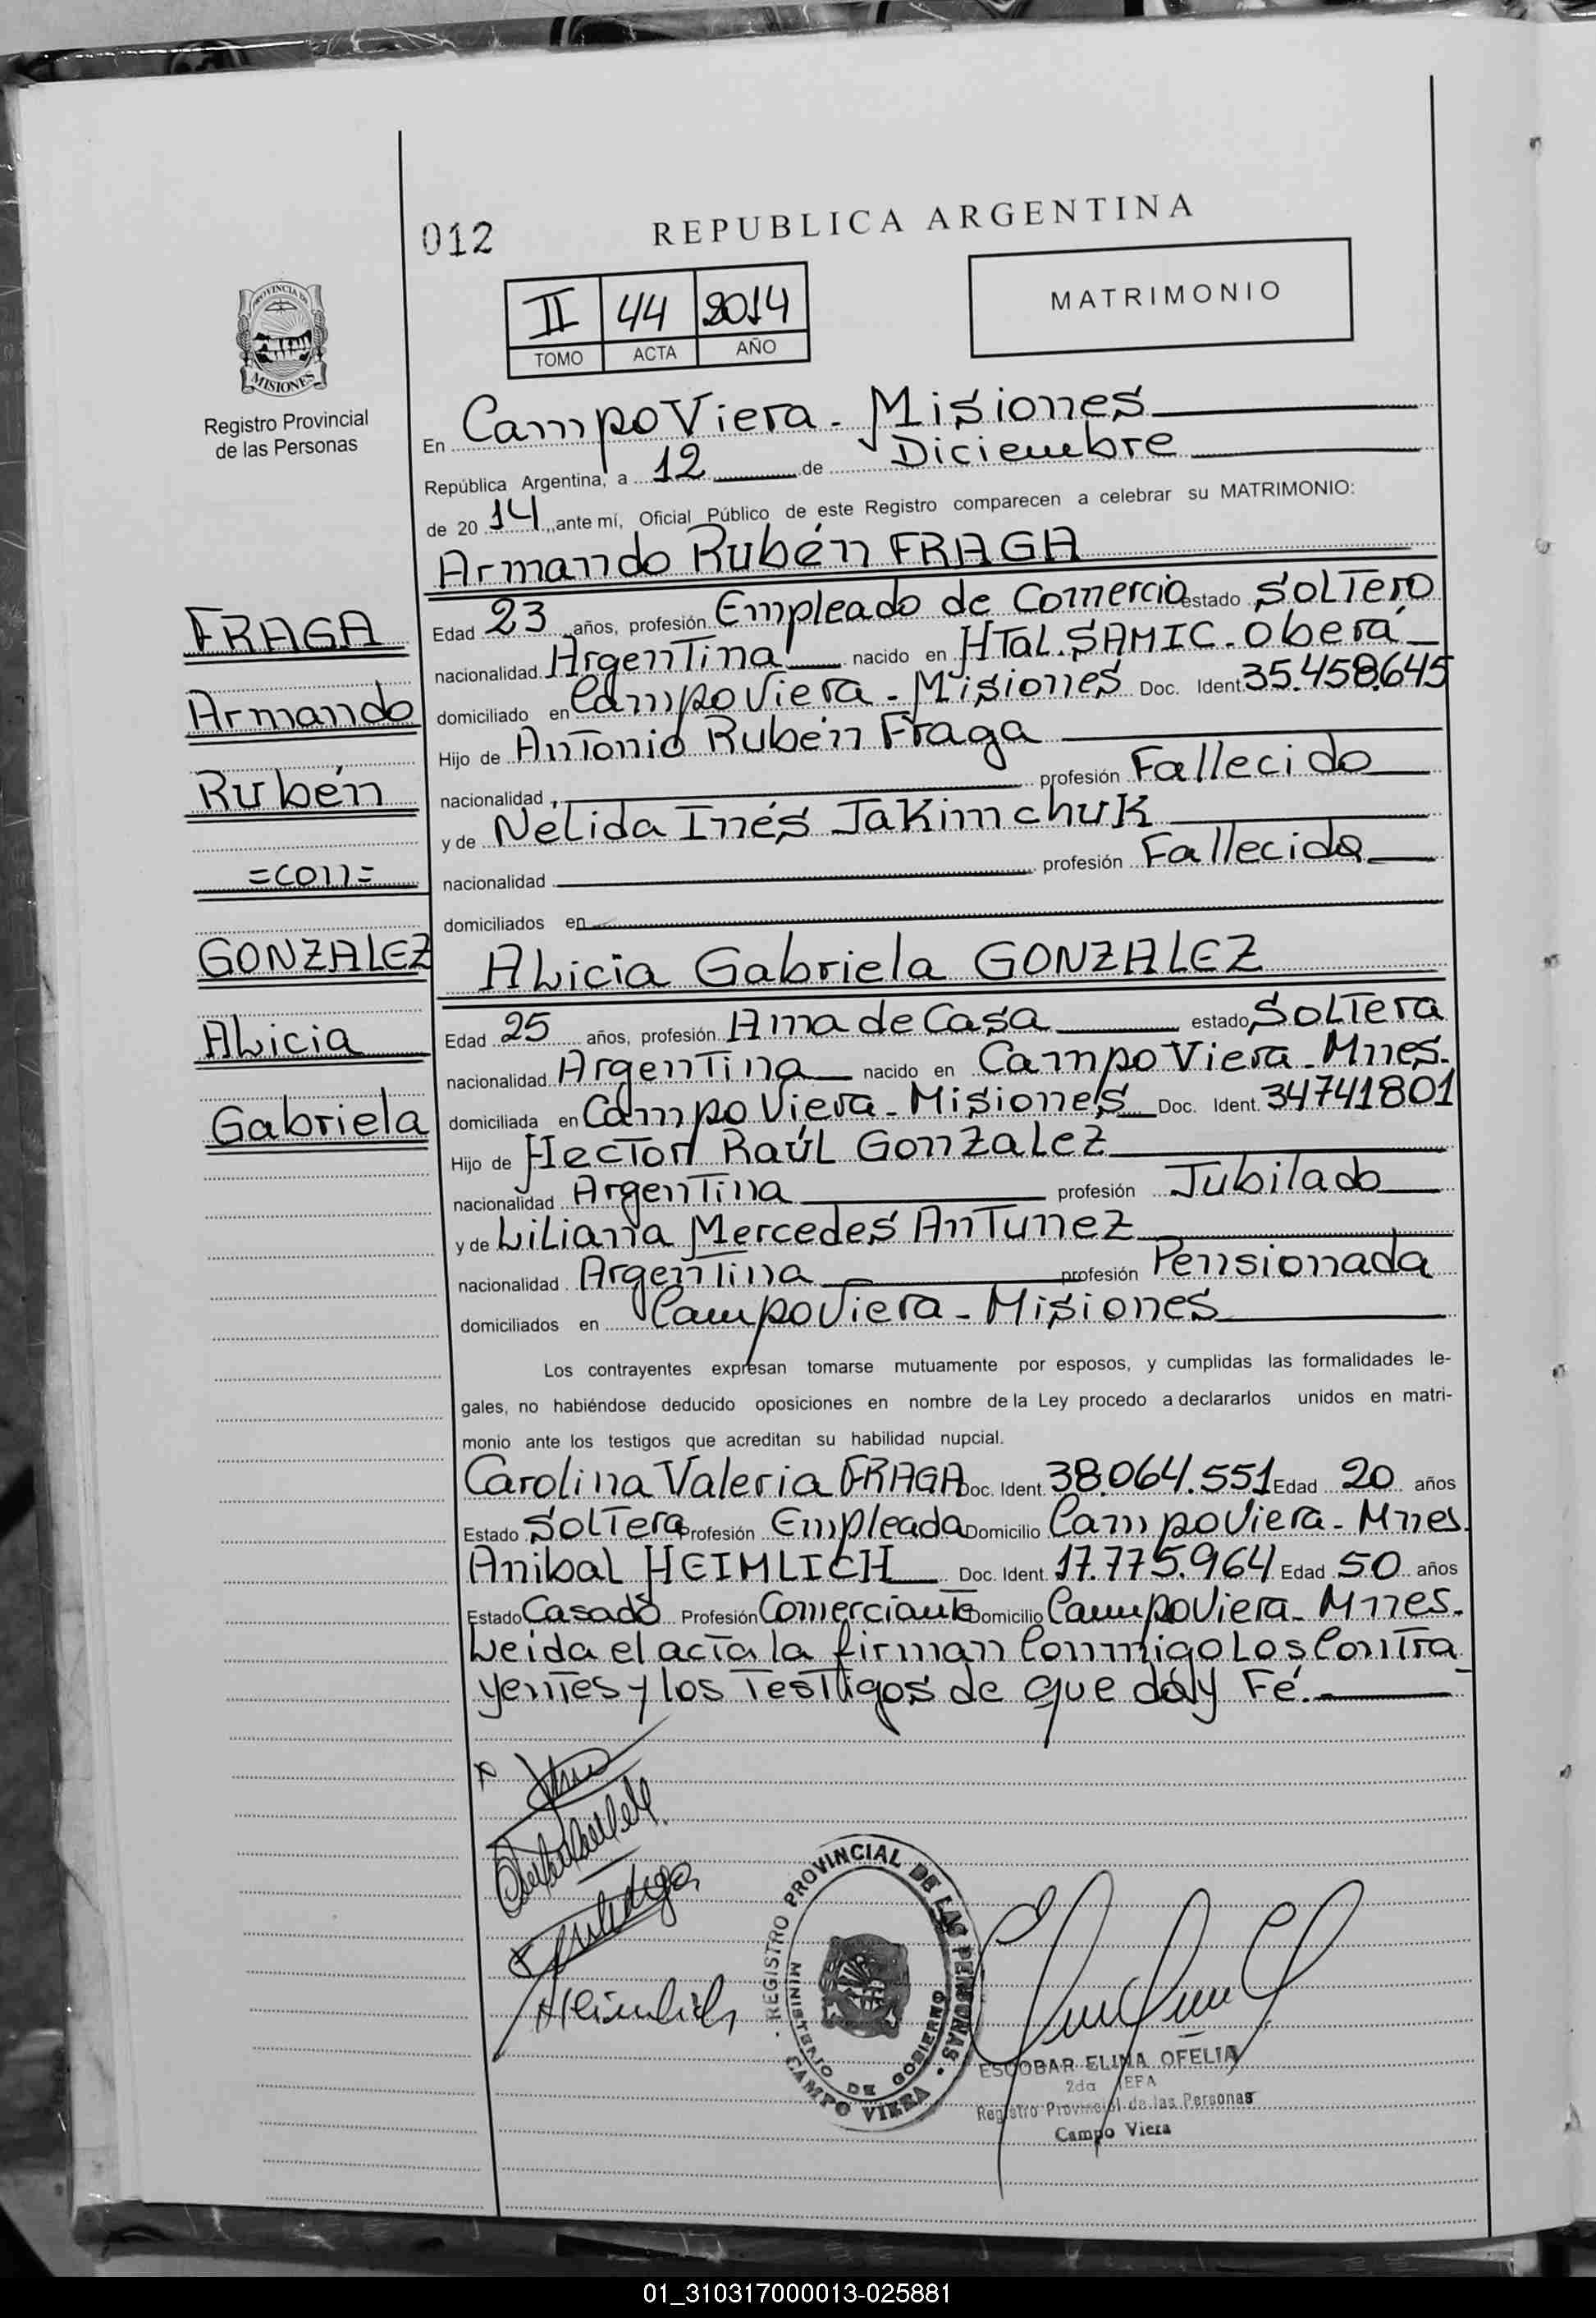 012
REPUBLICA ARGENTINA
II 44 2014
TOMO ACTA AÑO
MATRIMONIO
PROVINCIA DE
MISIONES
Registro Provincial
de las Personas
En Campo Viera - Misiones
República Argentina, a 12 de Diciembre
de 2014, ante mí, Oficial Público de este Registro comparecen a celebrar su MATRIMONIO:
Armando Rubén FRAGA
FRAGA
Armando
Rubén
=con=
GONZALEZ
Alicia
Gabriela
Edad 23 años, profesión Empleado de Comercio estado Soltero
nacionalidad Argentina nacido en HTal. SAMIC - Oberá
domiciliado en Campo Viera - Misiones Doc. Ident. 35.458.645
Hijo de Antonio Rubén Fraga
nacionalidad profesión Fallecido
y de Nelida Inés Jakimchuk
nacionalidad profesión Fallecida
domiciliados en
Alicia Gabriela GONZALEZ
Edad 25 años, profesión Ama de Casa estado Soltera
nacionalidad Argentina nacido en Campo Viera - Mnes.
domiciliada en Campo Viera - Misiones Doc. Ident. 34741801
Hijo de Hector Raúl Gonzalez
nacionalidad Argentina profesión Jubilado
y de Liliana Mercedes Antunez
nacionalidad Argentina profesión Pensionada
domiciliados en Campo Viera - Misiones
Los contrayentes expresan tomarse mutuamente por esposos, y cumplidas las formalidades le-
gales, no habiéndose deducido oposiciones en nombre de la Ley procedo a declararlos unidos en matri-
monio ante los testigos que acreditan su habilidad nupcial.
Carolina Valeria FRAGA Doc. Ident. 38.064.551 Edad 20 años
Estado Soltera Profesión Empleada Domicilio Campo Viera - Mnes.
Anibal HEIMLICH Doc. Ident. 17.775.964 Edad 50 años
Estado Casado Profesión Comerciante Domicilio Campo Viera - Mnes.
Leida el acta la firman Conmigo Los Contra
yentes y los Testigos de que doy Fé.
Heimlich
REGISTRO PROVINCIAL DE LAS PERSONAS
MINISTERIO DE GOBIERNO
CAMPO VIERA
ESCOBAR ELINA OFELIA
2da JEFA
Registro Provincial de las Personas
Campo Viera
01_310317000013-025881